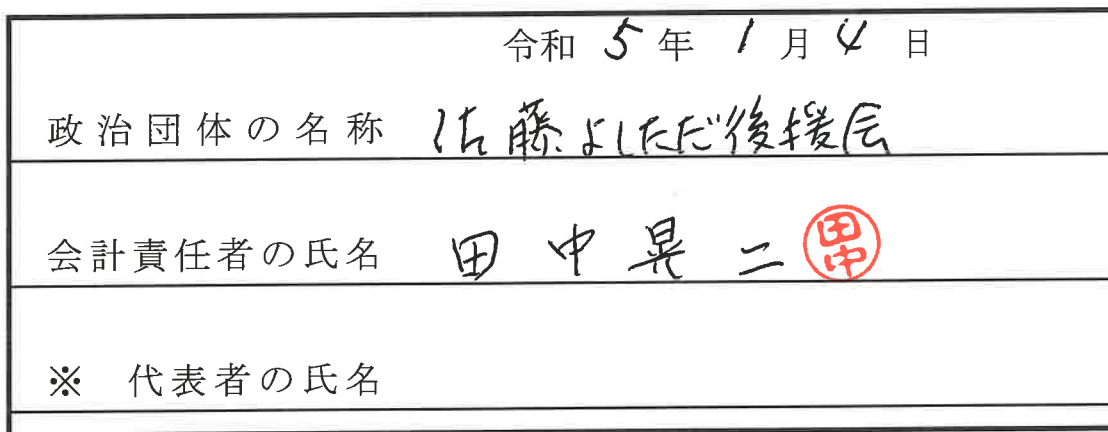 令和 5 年 1 月 4 日
政治団体の名称 佐藤よしただ後援会
会計責任者の氏名 田中晃二 田中
※ 代表者の氏名